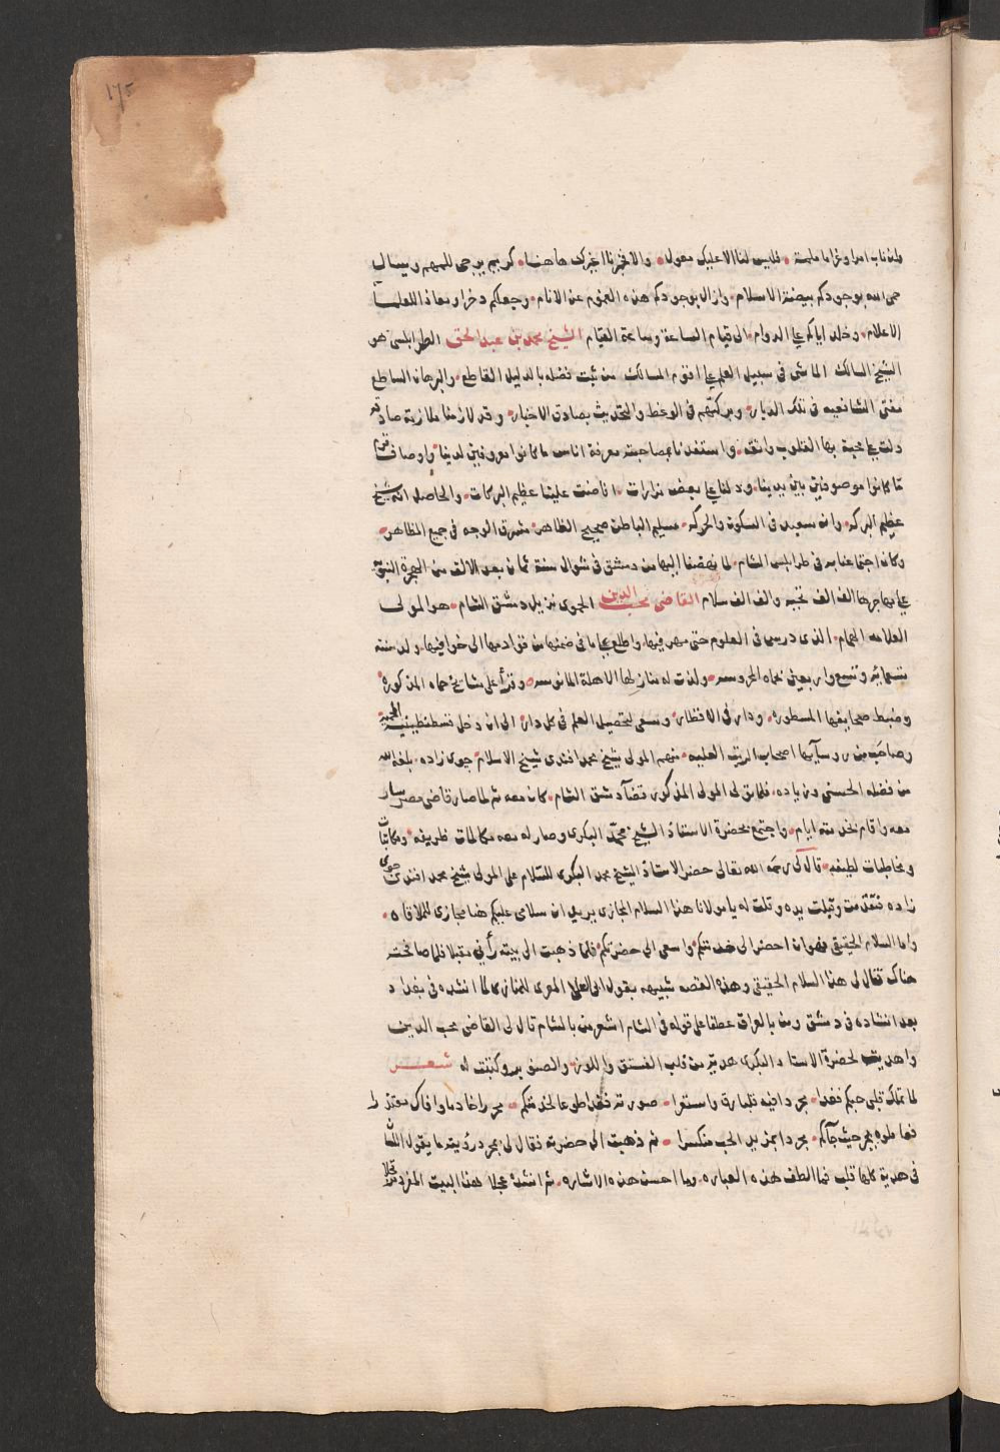 ١٧٥
فليس لنا الا عليك معول والا فخبرنا اغيرك هاهنا كريم يرجى للمهم ويسال
حمى الله بوجودكم بيضة الاسلام وازال بوجودكم هذه الغموم عن الانام وجعلكم ذخرا ومعاذا للعلما
الاعلام وخلد ايامكم على الدوام الى قيام الساعة وساعة القيام الشيخ محمد بن عبد الحق الطرابلسي هو
الشيخ السالك الماشي في سبيل العلم على اقوم المسالك من ثبت فضله بالدليل القاطع والبرهان الساطع
مفتي الشافعيه في تلك الديار وبركتهم في الوعظ والتحديث بصادق الاخبار وقد لازمنا ملازمة صادقه
دلت على محبة بها القلوب واثقه واستفدنا بمصاحبته معرفة اناس ما كانوا معروفين لدينا واوصاف قوم
ما كانوا موصوفين بين يدينا ودلنا على بعض مزارات افاضت علينا عظيم البركات والحاصل انه شيخ
عظيم البركه وانه سعيد في السكون والحركه سليم الباطن صحيح الظاهر مشرق الوجه في جميع المظاهر
وكان اجتماعنا به في طرابلس الشام لما نهضنا اليها من دمشق في شوال سنة ثمان بعد الالف من الهجرة النبويه
على مهاجرها الف الف تحيه والف الف سلام القاضي محب الدين الحموي نزيل دمشق الشام هو المولى
العلامه الهمام الذي درس في العلوم حتى مهر فيها واطلع على ما في ضمنها من قوادمها الى خوافيها ولد سنة
تسعمائة وتسع واربعين بحماه المحروسه ولذت له منازلها الاهلة المانوسه وقرأ على مشايخ حماه المذكوره
وضبط صحايفها المسطوره ودار في الاقطار وسعى لتحصيل العلم في كل دار الى ان دخل قسطنطينية المحميه
وصاحب من روسائها اصحاب الرتب العليه منهم المولى شيخ محمد افندي شيخ الاسلام جوي زاده بلغه الله
من فضله الحسنى وزياده فلما تولى المولى المذكور قضآ دمشق الشام كان معه ثم لما صار قاضي مصر سار
معه واقام بخدمته ايام واجتمع بحضرة الاستاذ الشيخ محمد البكري وصار له معه مكالمات ظريفه ومكاتبات
ومخاطبات لطيفه قال لي رحمه الله تعالى حضر الاستاذ الشيخ محمد البكري للسلام على المولى شيخ محمد افندي جوي
زاده فتقدمت وقبلت يده وقلت له يا مولانا هذا السلام المجازي يريد ان سلامي عليكم هنا مجازي للملاقاه
واما السلام الحقيقي فهو ان احضر الى خدمتكم واسعى الى حضرتكم فلما ذهبت الى بيته رأني مقبلا فلما صافحته
هناك فقال لي هذا السلام الحقيقي وهذه القصه شبيهه بقول ابي العلا المعري للمنازي لما انشده في بغداد
بعد انشاده في دمشق ومن بالعراق عطفا على قوله في الشام اشعر من بالشام قال لي القاضي محب الدين
واهديت لحضرة الاستاذ البكري هدية من قلب الفستق واللوز والصنوبر وكتبت له شعر
لما تملك قلبي حبكم فغدا مجردا فيه قلبا رق واستعرا صورته فغدا طوعا لخدمتكم محررا خادما وافاك معتذرا
فعاملوه بجبر حيث جآكم مجردا بمزيد الحب منكسرا ثم ذهبت الى حضرته فقال لي بمجرد رؤيته ما يقول القلب
في هدية كلها قلب فما الطف هذه العباره وما احسن هذه الاشاره ثم انشد عجلا هذا البيت المفرد